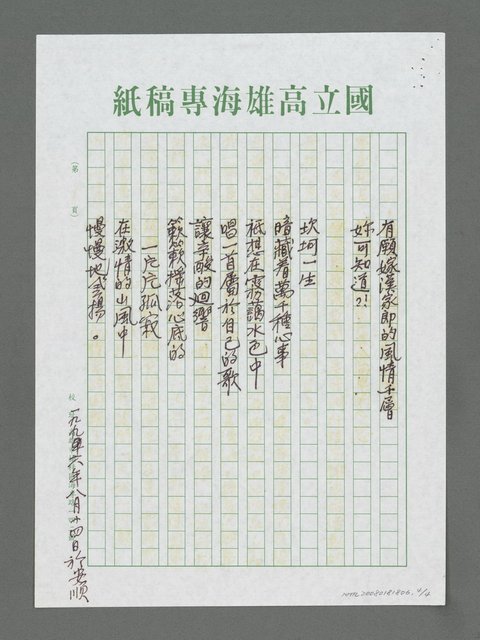 國立高雄海專稿紙
（第　　頁）
有願嫁漢家郎的風情千層
妳可知道?!
坎坷一生
暗藏着萬千種心事
祇想在雾藹水色中
唱一首屬於自己的歌
讓辛酸的迴響
簌簌撣落心底的
一定定孤寂
在激情的山風中
慢慢地飄揚。
校
一九九六年八月廿四日於安順
NMTL20080181806. 4/4